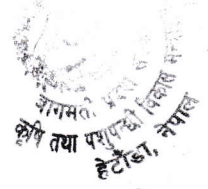 बागमती प्रदेश
कृषि तथा पशुपन्छी विकास
हेटौंडा, नेपाल